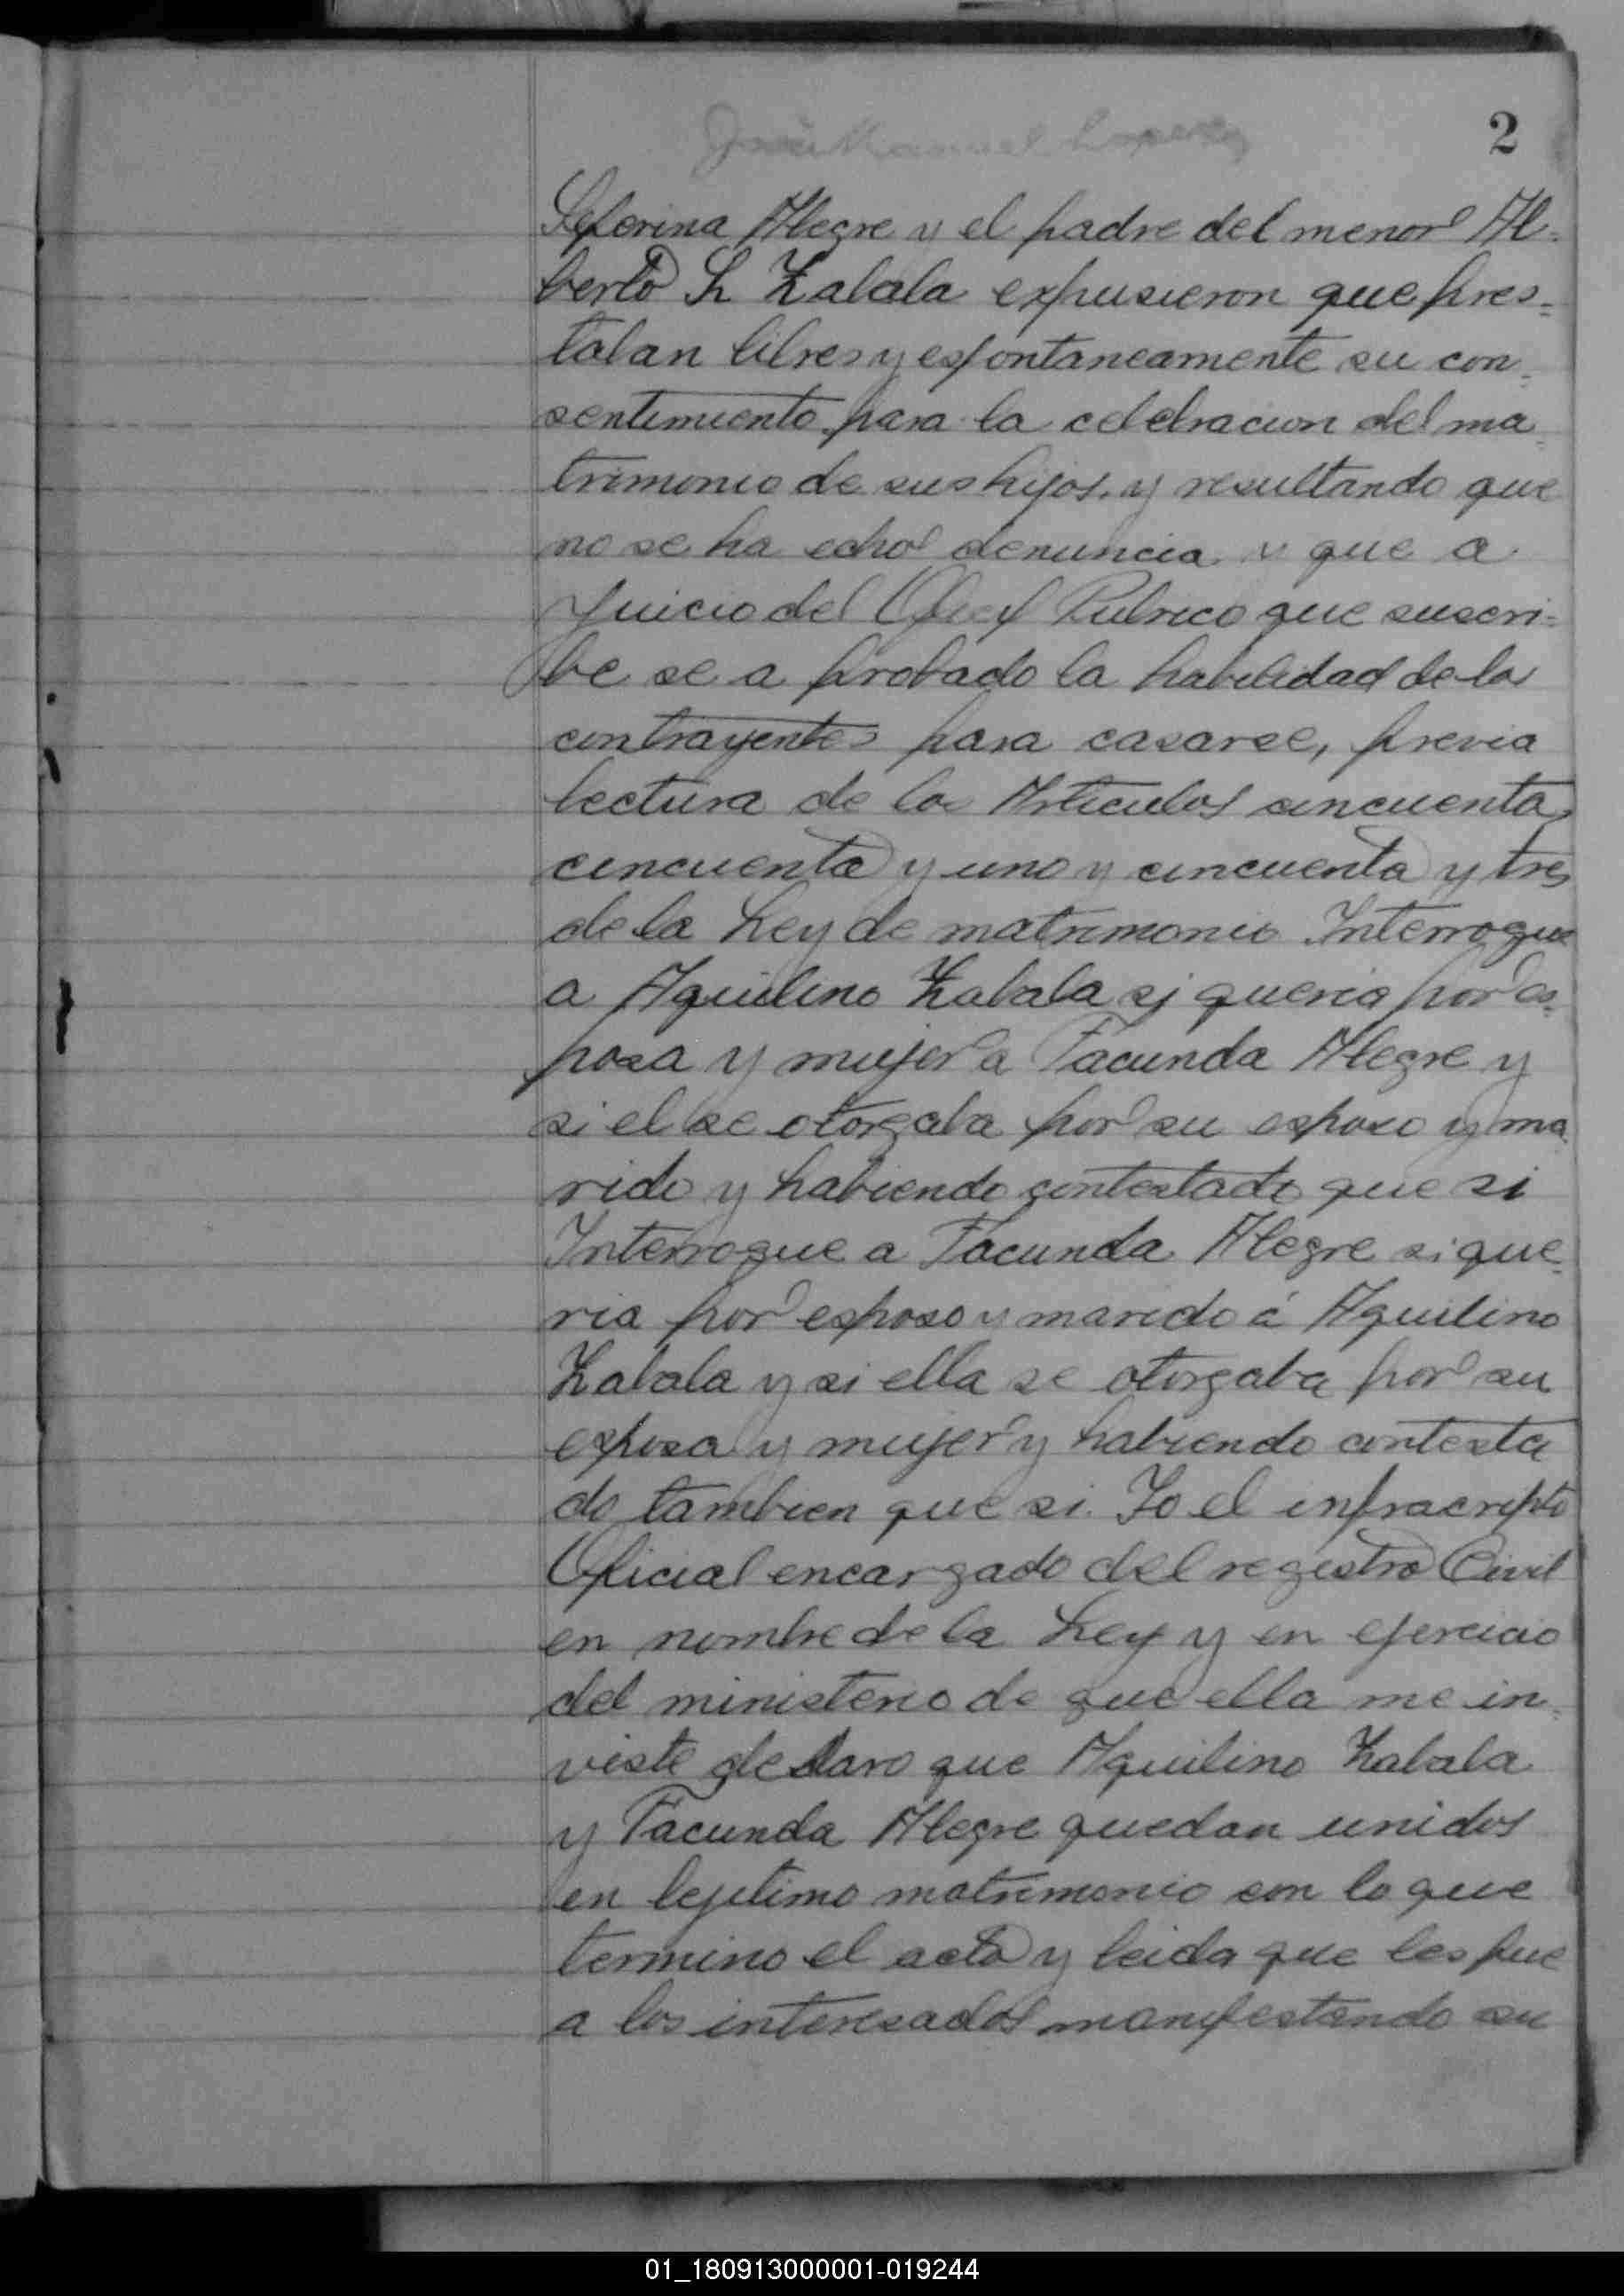 2
José Manuel Lopez
Seferina Alegre y el padre del menor Al-
berto L Zabala expusieron que pres-
taban libres y espontaneamente su con-
sentimiento para la celebracion del ma-
trimonio de sus hijos. y resultando que
no se ha echo denuncia y que a
juicio del Ofic<sup>l</sup> Publico que suscri-
be se a probado la habilidad de los
contrayentes para casarse, previa
lectura de los Articulos cincuenta,
cincuenta y uno y cincuenta y tres
de la Ley de matrimonio Interrogue
a Aquilino Zabala si queria por es-
posa y mujer a Facunda Alegre y
si el se otorgaba por su esposo y ma-
rido y habiendo contestado que si
Interrogue a Facunda Alegre si que-
ria por esposo y marido á Aquilino
Zabala y si ella se otorgaba por su
esposa y mujer y habiendo contesta
do tambien que si. Yo el infracripto
Oficial encargado del registro Civil
en nombre de la Ley y en ejercicio
del ministerio de que ella me in-
viste declaro que Aquilino Zabala
y Facunda Alegre quedan unidos
en lejitimo matrimonio con lo que
termino el acta y leida que les fue
a los interesados manifestando su
01_180913000001-019244